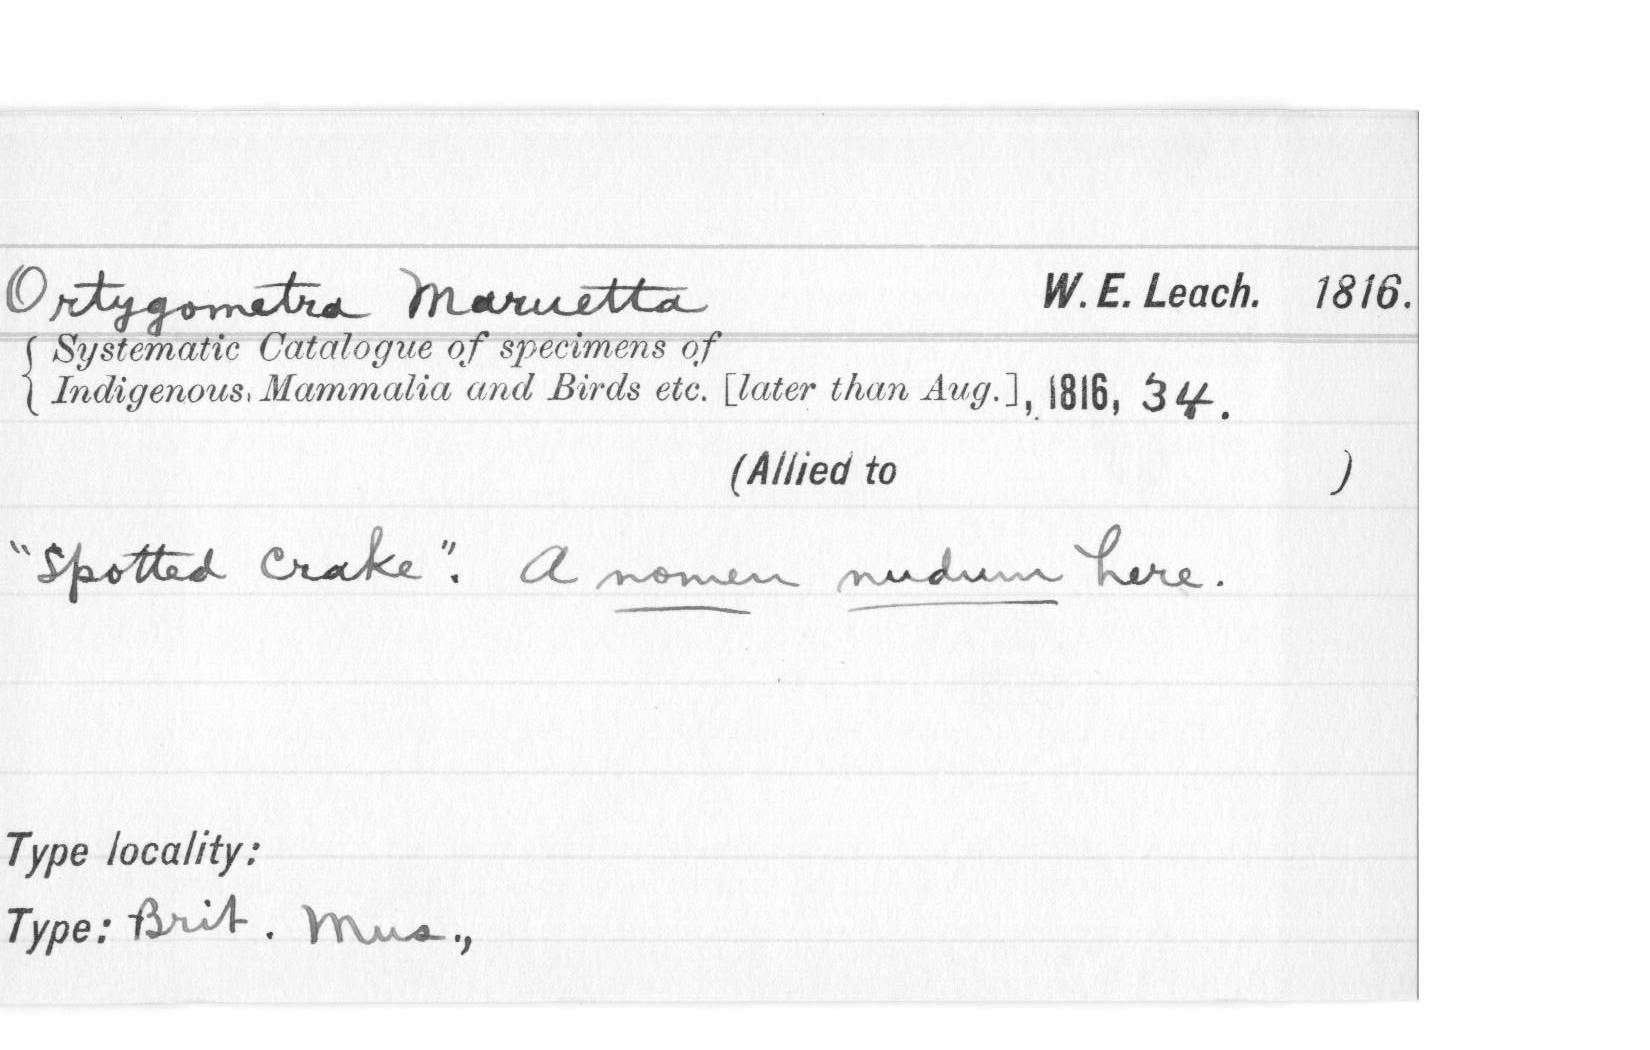 Ortygometra Maruetta W. E. Leach. 1816.
Systematic Catalogue of specimens of
Indigenous, Mammalia and Birds etc. [later than Aug.], 1816, 34.
(Allied to )
"Spotted Crake". A nomen nudum here.
Type locality:
Type: Brit. Mus.,